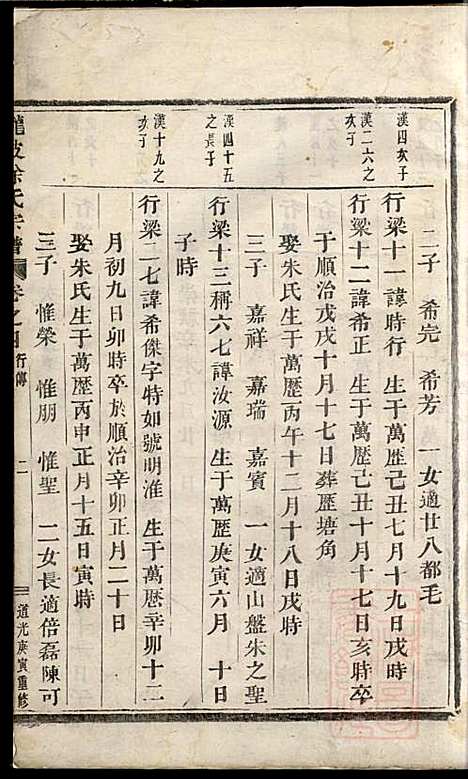 二子 希完 希芳 一女適廿八都毛
漢四次子
行梁十一諱時行 生于萬歷己丑七月十九日戌時
漢二六之
次子
行梁十二諱希正 生于萬歷己丑十月十七日亥時卒
于順治戊戌十月十七日葬歷塘角
娶朱氏生于萬歷丙午十二月十八日戌時
三子 嘉祥 嘉瑞 嘉賓 一女適山盤朱之聖
漢四十五
之長子
行梁十三稱六七諱汝源 生于萬歷庚寅六月 十日
子時
漢十九之
次子
行梁二七諱希傑字特如號明淮 生于萬歷辛卯十二
月初九日卯時卒於順治辛卯正月二十日
娶朱氏生于萬歷丙申正月十五日寅時
三子 惟榮 惟朋 惟聖 二女長適倍磊陳可
徐氏宗譜 卷之四 行傳 二 道光庚寅重修